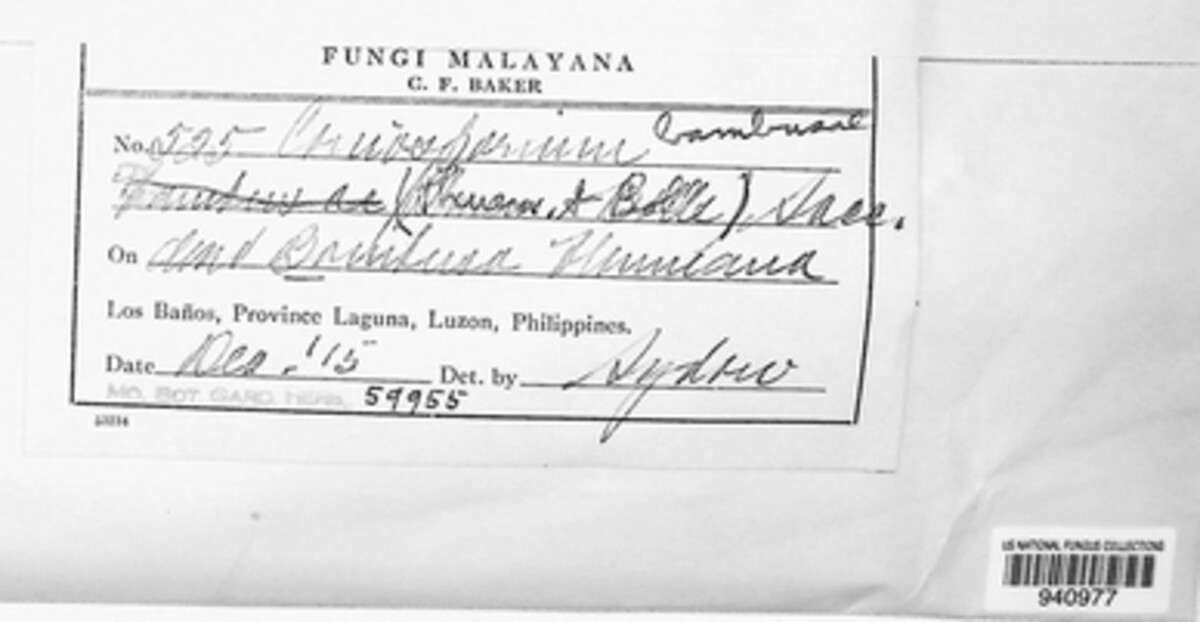 FUNGI MALAYANA
C. F. BAKER
No. 525 Coniosporium bambusae
Bambusae (Thuem. & Bolle) Sacc.
On dead Bambusa Blumeana
Los Baños, Province Laguna, Luzon, Philippines.
Date Dec. '15 Det. by Sydow
MO. BOT. GARD. HERB. 59955
US NATIONAL FUNGUS COLLECTIONS
940977